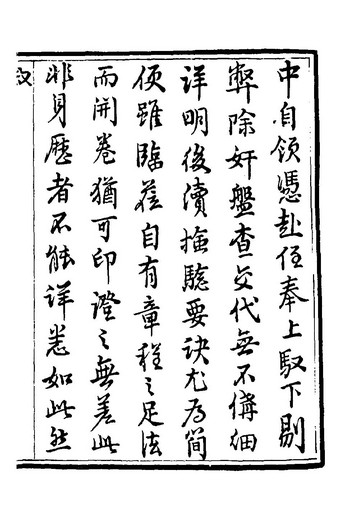 中自領憑赴任奉上馭下剔
弊除奸盤查交代無不備細
詳明後續撿驗要訣尤為簡
便雖臨蒞自有章程之足法
而開卷猶可印證之無差此
非身歷者不能詳悉如此然